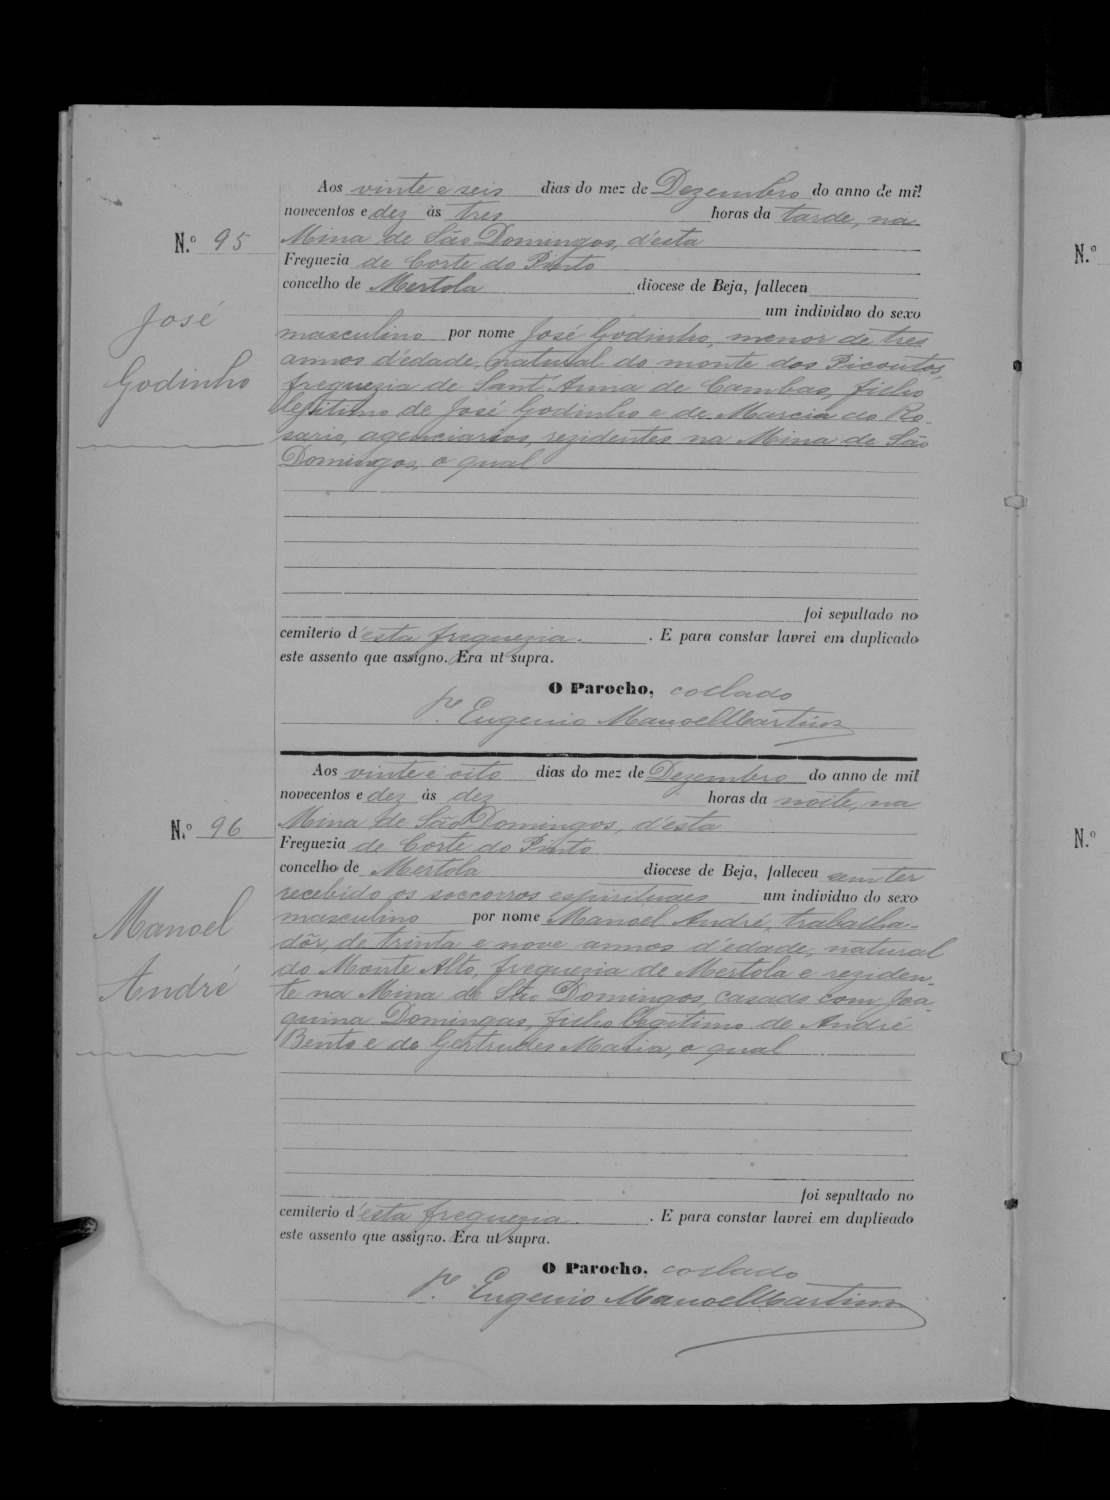 Aos vinte e seis dias do mez de Dezembro do anno de mil
novecentos e dez às tres horas da tarde, na
N.º 95
Mina de São Domingos, d'esta
Freguezia de Corte do Pinto
concelho de Mertola diocese de Beja, falleceu
um individuo do sexo
José
Godinho
masculino por nome José Godinho, menor de tres
annos d'edade, natural do monte dos Picoutos,
freguezia de Sant'Anna de Cambas, filho
legitimo de José Godinho e de Marcia do Ro-
sario, agenciarios, rezidentes na Mina de São
Domingos, o qual
foi sepultado no
cemiterio d'esta freguezia. E para constar lavrei em duplicado
este assento que assigno. Era ut supra.
O Parocho, collado
P.e Eugenio Manoel Martins
Aos vinte e oito dias do mez de Dezembro do anno de mil
novecentos e dez às dez horas da noite, na
N.º 96
Mina de São Domingos, d'esta
Freguezia de Corte do Pinto
concelho de Mertola diocese de Beja, falleceu sem ter
recebido os soccorros espirituaes um individuo do sexo
Manoel
André
masculino por nome Manoel André, trabalha-
dôr, de trinta e nove annos d'edade, natural
do Monte Alto, freguezia de Mertola e reziden-
te na Mina de São Domingos, casado com Joa-
quina Domingas, filho legitimo de André
Bento e de Gertrudes Maria, o qual
foi sepultado no
cemiterio d'esta freguezia. E para constar lavrei em duplicado
este assento que assigno. Era ut supra.
O Parocho, collado
P.e Eugenio Manoel Martins
N.º
N.º